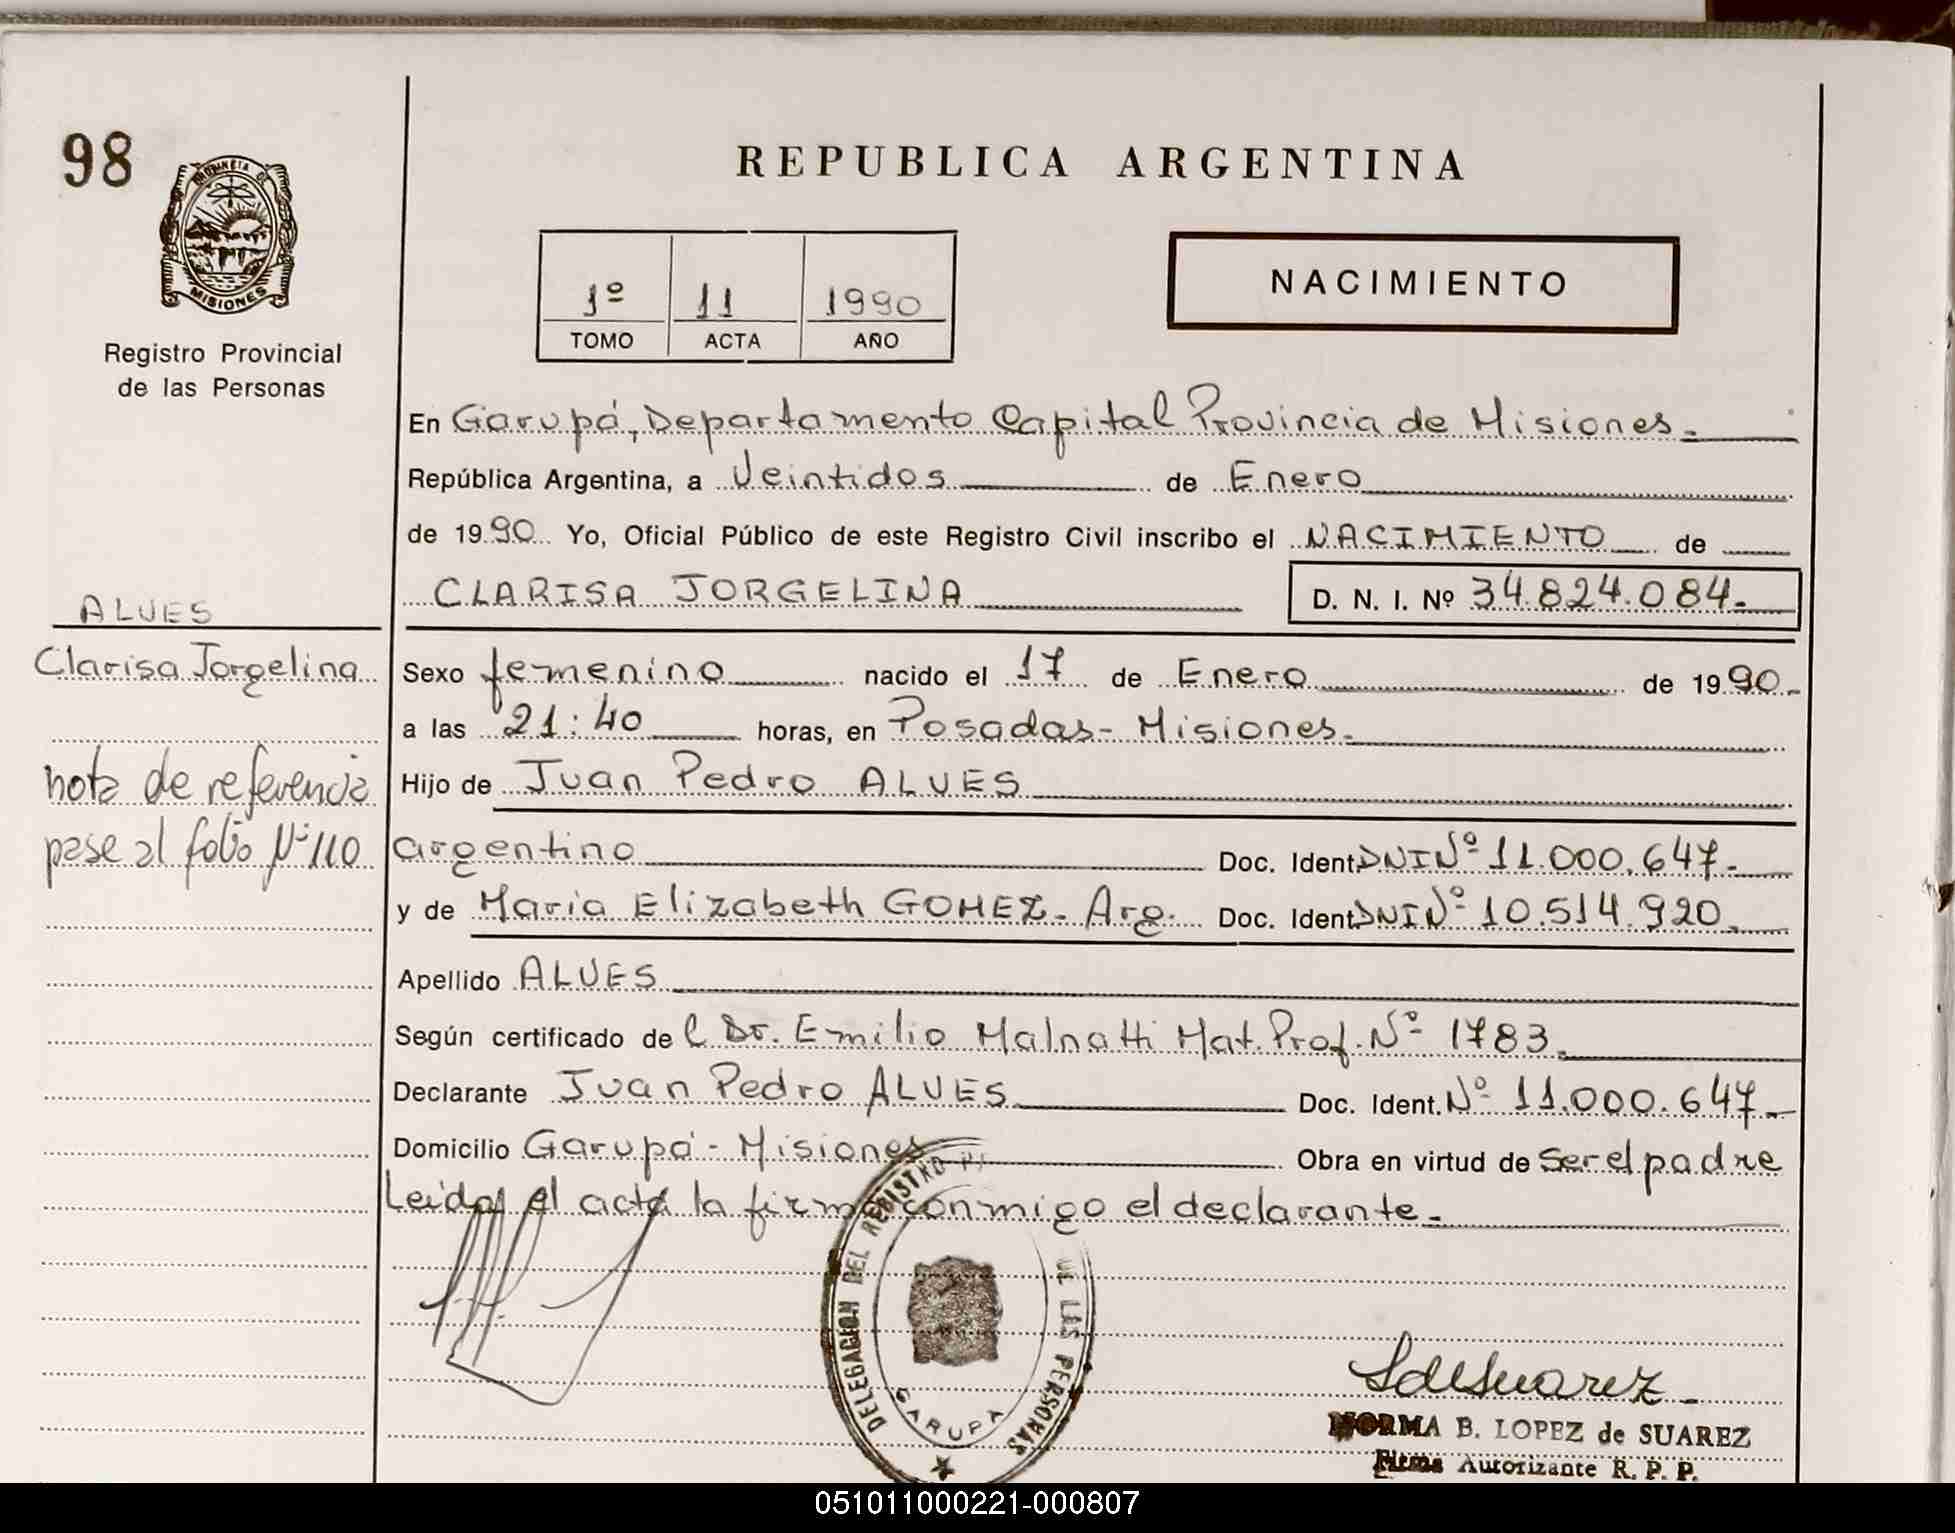 98
PROVINCIA DE
MISIONES
Registro Provincial
de las Personas
REPUBLICA ARGENTINA
1º 11 1990
TOMO ACTA AÑO
NACIMIENTO
En Garupá, Departamento Capital Provincia de Misiones.-
República Argentina, a Veintidos de Enero
de 1990 Yo, Oficial Público de este Registro Civil inscribo el NACIMIENTO de
CLARISA JORGELINA D. N. I. Nº 34.824.084.-
ALVES
Clarisa Jorgelina
Sexo femenino nacido el 17 de Enero de 1990.-
a las 21:40 horas, en Posadas - Misiones.-
Hijo de Juan Pedro ALVES
nota de referencia
pase al folio Nº 110
argentino Doc. Ident. DNI Nº 11.000.647.-
y de Maria Elizabeth GOMEZ - Arg. Doc. Ident. DNI Nº 10.514.920.-
Apellido ALVES
Según certificado del Dr. Emilio Malnatti Mat. Prof. Nº 1783.
Declarante Juan Pedro ALVES Doc. Ident. Nº 11.000.647.-
Domicilio Garupá - Misiones Obra en virtud de ser el padre
Leida el acta la firma conmigo el declarante.-
DELEGACION DEL REGISTRO DE LAS PERSONAS
GARUPA
SdeSuarez
NORMA B. LOPEZ de SUAREZ
Firma Autorizante R. P. P.
051011000221-000807